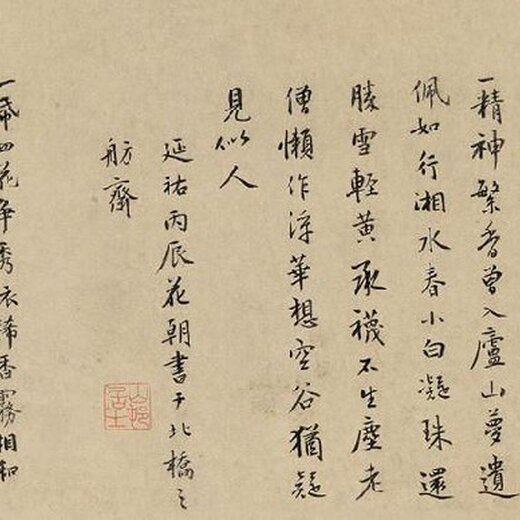 一精神繁香曾入廬山夢遺
佩如行湘水春小白凝珠還
勝雪輕黃承襪不生塵老
僧懶作浮華想空谷猶疑
見似人
延祐丙辰花朝書于北橋之
舫齋
山邨居士
四花爭秀衣香霧相